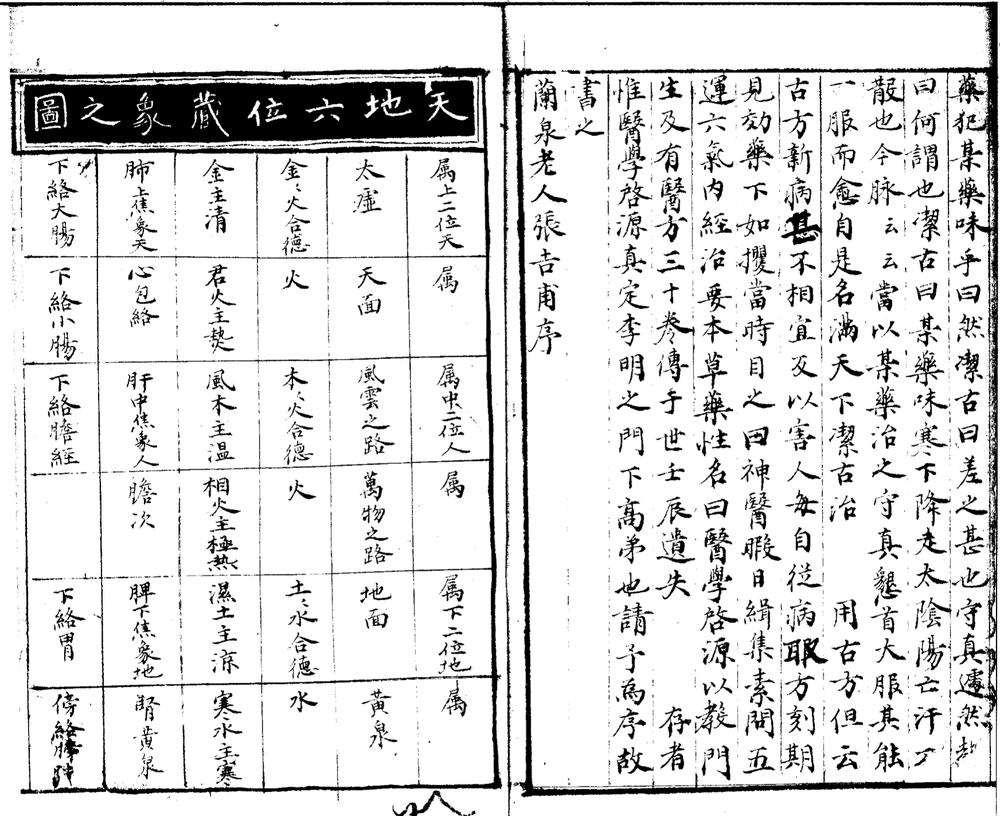 藥犯某藥味乎曰然潔古曰差之甚也守真遽然起
曰何謂也潔古曰某藥味寒下降走太陰陽亡汗不
散也今脉云云當以某藥治之守真懇首大服其能
一服而愈自是名滿天下潔古治 用古方但云
古方新病甚不相宜反以害人每自從病眼方刻期
見効藥下如攫當時目之曰神醫暇日緝集素問五
運六氣内經治要本草藥性名曰醫學啓源以教門
生及有醫方三十卷傳于世壬辰遺失 存者
惟醫學啓源真定李明之門下高弟也請予為序故
書之
蘭泉老人張吉甫序
天地六位藏象之圖
属上二位天 属 属中二位人 属 属下二位地 属
太虛 天面 風雲之路 萬物之路 地面 黃泉
金〻火合德 火 木〻火合德 火 土〻水合德 水
金主清 君火主熱 風木主温 相火主極熱 濕土主涼 寒水主寒
肺上焦象天 心包絡 肝中焦象人 膽次 脾下焦象地 腎黃泉
下絡大腸 下絡小腸 下絡膽經 下絡胃 傍絡